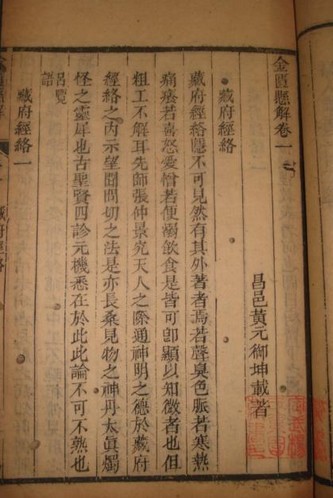 金匱懸解卷一
昌邑黃元御坤載著
藏府經絡
藏府經絡隱不可見然有其外著者焉若聲臭色脈若寒熱
痛癢若喜怒愛憎若便溺飲食是皆可卽顯以知微者也但
粗工不解耳先師張仲景究天人之際通神明之德於藏府
經絡之內示望聞問切之法是亦長桑見物之神丹太眞燭
怪之靈犀也古聖賢四診元機悉在於此此論不可不熟也
呂覽
語
藏府經絡一